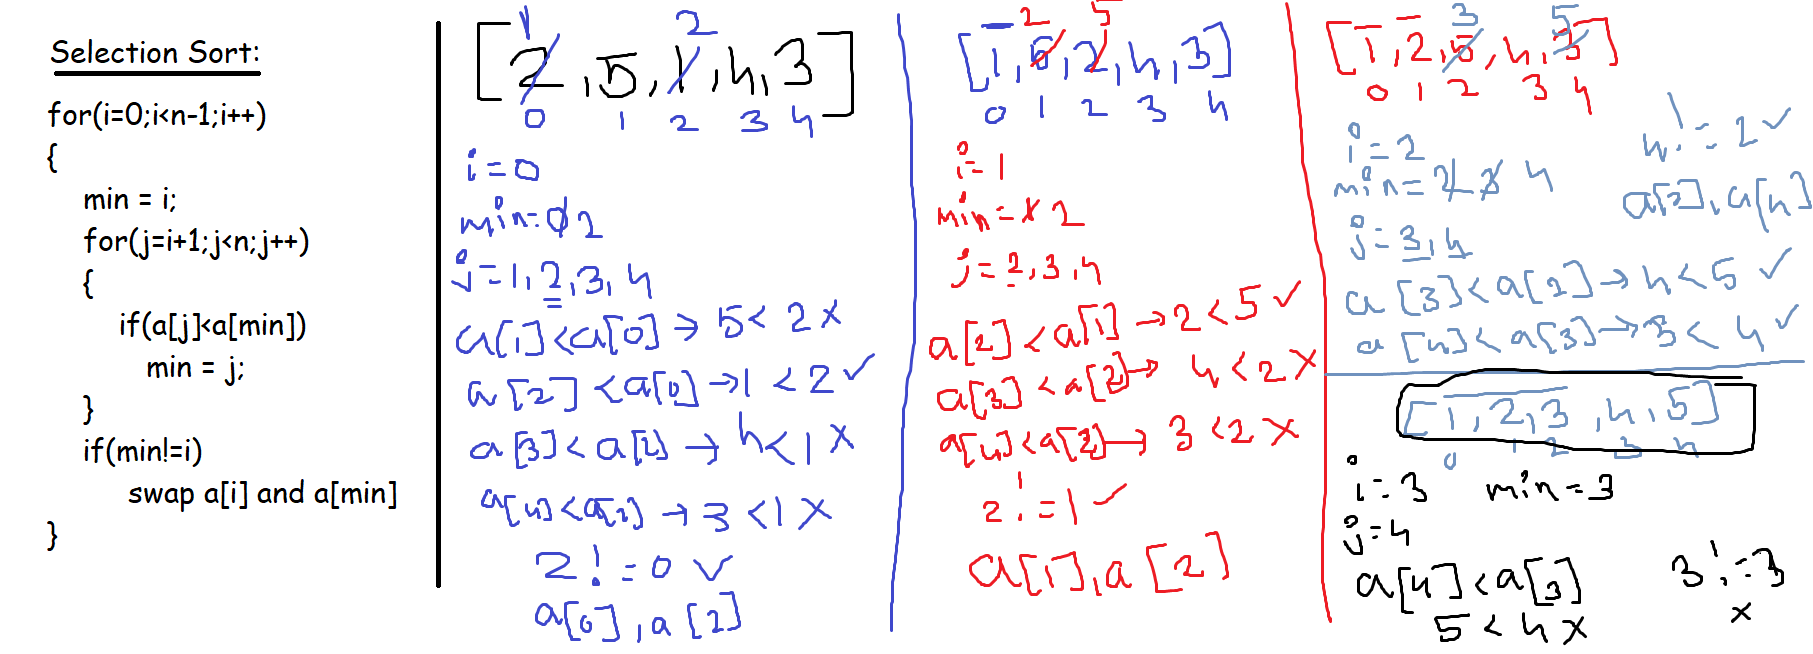 Selection Sort:
for(i=0;i<n-1;i++)
{
min = i;
for(j=i+1;j<n;j++)
{
if(a[j]<a[min])
min = j;
}
if(min!=i)
swap a[i] and a[min]
}
1 2
[2,5,1,4,3]
0 1 2 3 4
i=0
min=0 2
j=1,2,3,4
a[1]<a[0]→5<2 x
a[2]<a[0]→1<2 ✓
a[3]<a[2]→4<1 x
a[4]<a[2]→3<1 x
2!=0 ✓
a[0],a[2]
2 5
[1,5,2,4,3]
0 1 2 3 4
i=1
min=1 2
j=2,3,4
a[2]<a[1]→2<5 ✓
a[3]<a[2]→4<2 x
a[4]<a[2]→3<2 x
2!=1 ✓
a[1],a[2]
3 5
[1,2,5,4,3]
0 1 2 3 4
i=2
min=2 3 4
j=3,4
4!=2 ✓
a[2],a[4]
a[3]<a[2]→4<5 ✓
a[4]<a[3]→3<4 ✓
[1,2,3,4,5]
0 1 2 3 4
i=3 min=3
j=4
a[4]<a[3]
5<4 x
3!=3
x